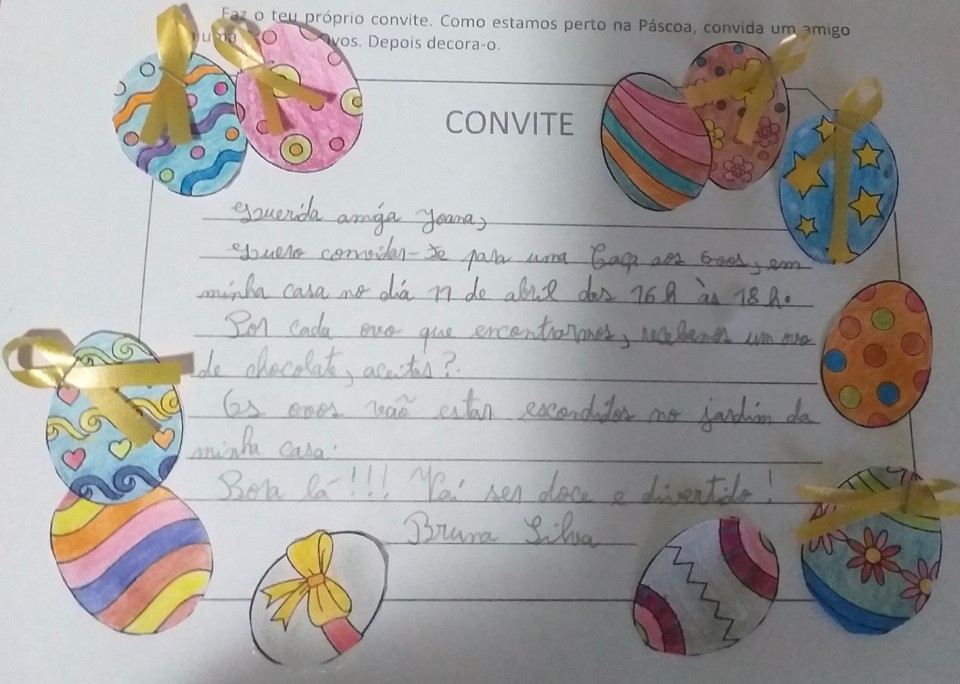 Faz o teu próprio convite. Como estamos perto na Páscoa, convida um amigo
uma ovos. Depois decora-o.
CONVITE
Querida amiga Joana,
Quero convidar-te para uma Caça aos ovos, em
minha casa no dia 17 de abril das 16 h às 18 h.
Por cada ovo que encontrarmos, recebemos um ovo
de chocolate, aceitas?
Os ovos vão estar escondidos no jardim da
minha casa.
Bora lá!!! Vai ser doce e divertido!
Bruna Silva